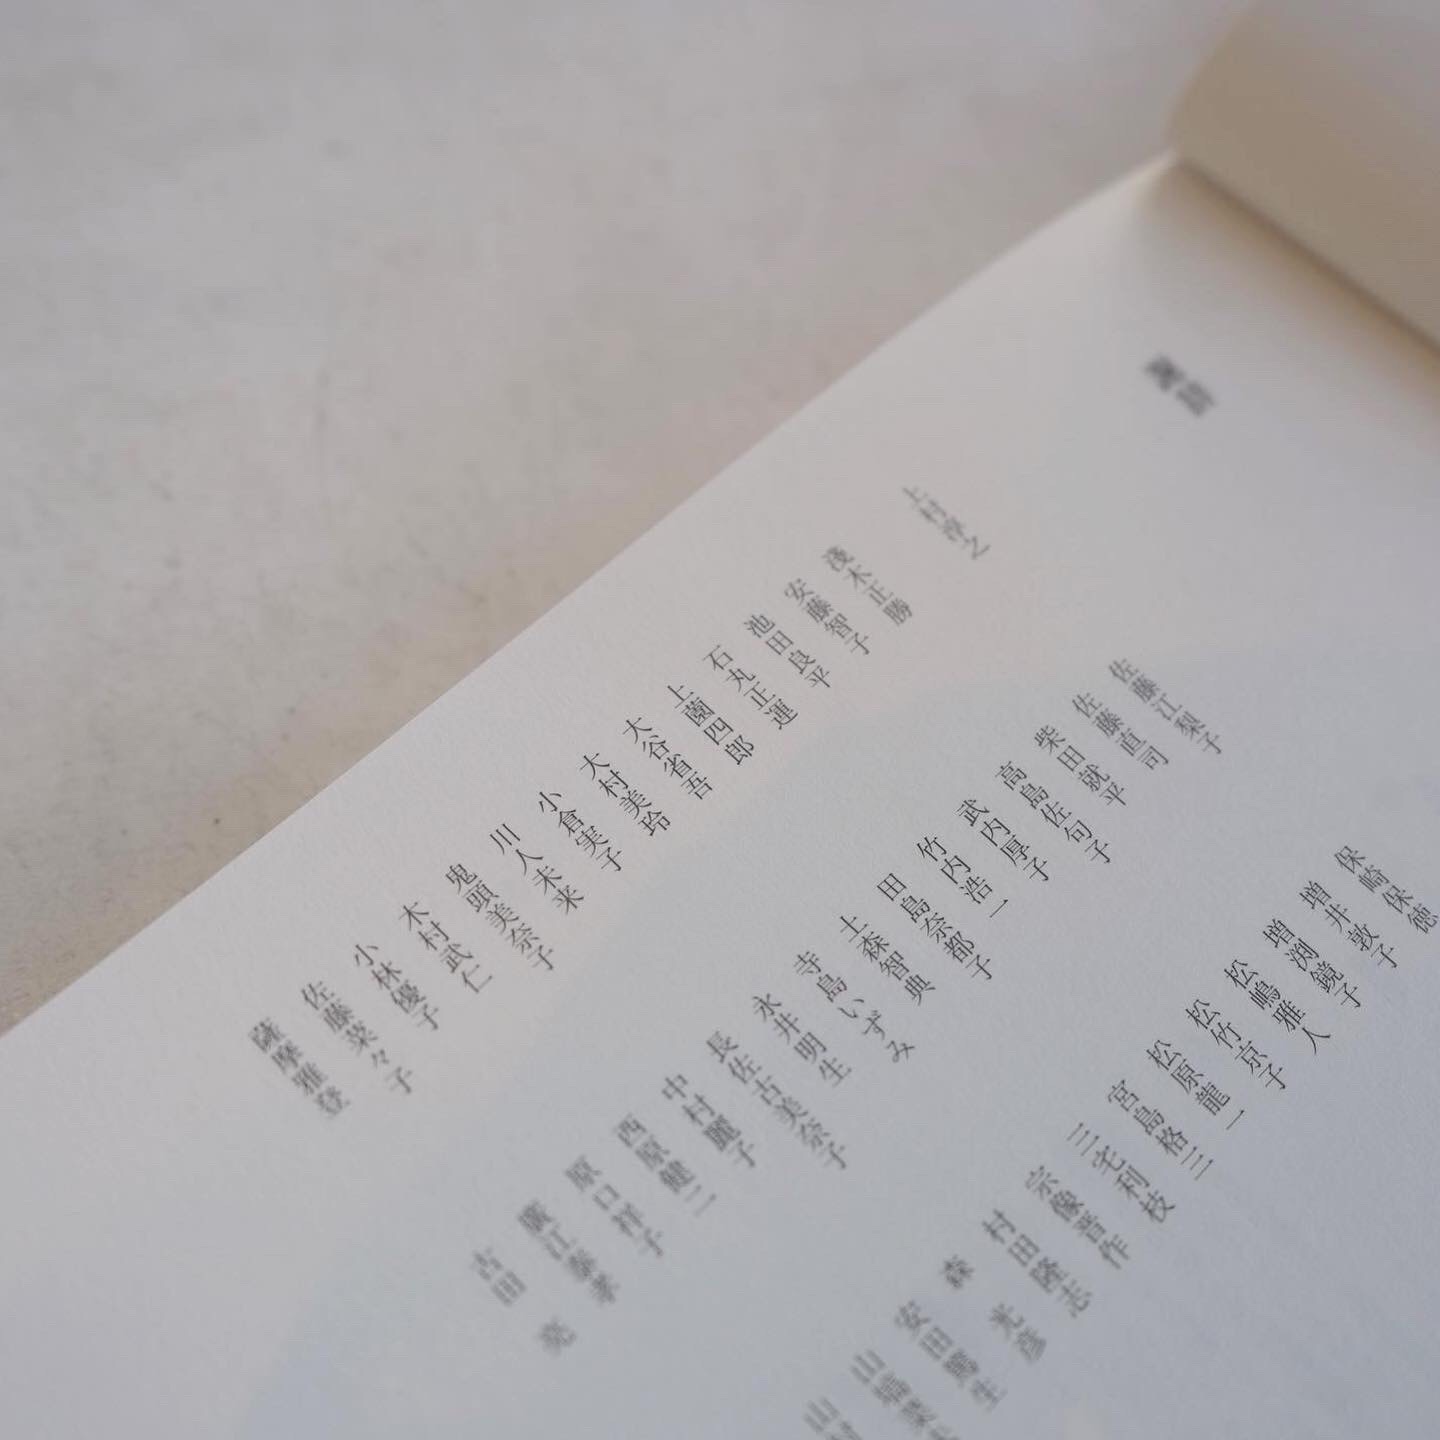 謝辞
上村淳之
淺木正勝
安藤智子
池田良平
石丸正運
上薗四郎
大谷省吾
大村美玲
小倉実子
川人未来
鬼頭美奈子
木村武仁
小林優子
佐藤菜々子
薩摩雅登
佐藤江梨子
佐藤直司
柴田就平
高島佐句子
武内厚子
竹内浩一
田島奈都子
土森智典
寺島いずみ
永井明生
長佐古美奈子
中村麗子
西原健二
原口梓子
廣江泰孝
古田 亮
保崎保徳
増井敦子
増渕鏡子
松嶋雅人
松竹京子
松原龍一
宮島格三
三宅利枝
宗像晋作
村田隆志
森 光彦
安田篤生